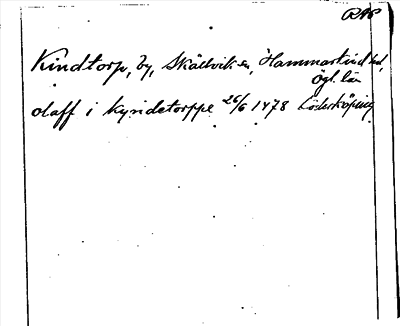 RAP
Kindtorp, by, Skällvik sn, Hammarkinds hd,
Ögl. län
olaff i kyndetorppe 26/6 1478 Söderköping